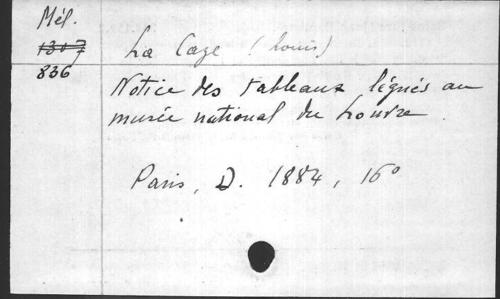 Mél.
1307
836
La Caze (Louis)
Notice des tableaux légués au
musée national du Louvre.
Paris, D. 1884, 16°